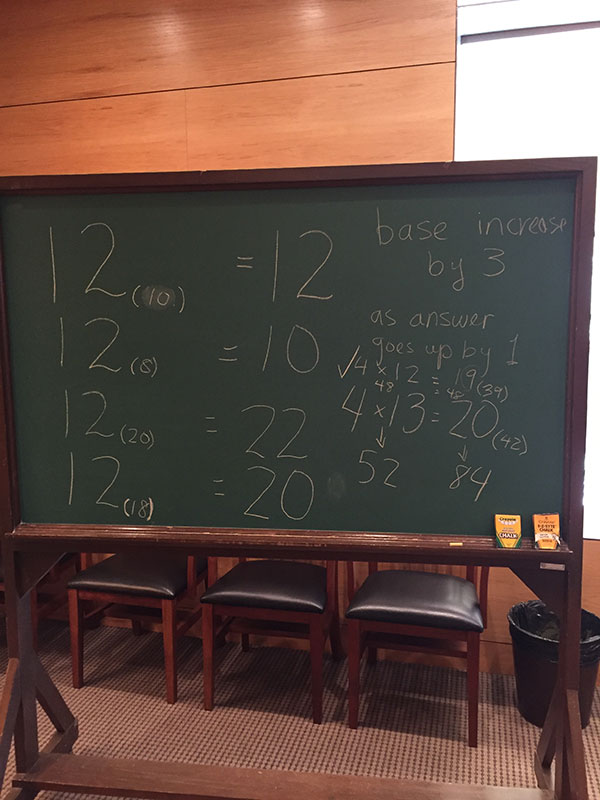 12(10) = 12
12(8) = 10
12(20) = 22
12(18) = 20
base increase
by 3
as answer
goes up by 1
✓4 × 12 = 19(39)
48 = 48
4 × 13 = 20(42)
↓ ↓
52 84
Crayola
CHALK
Crayola
CHALK